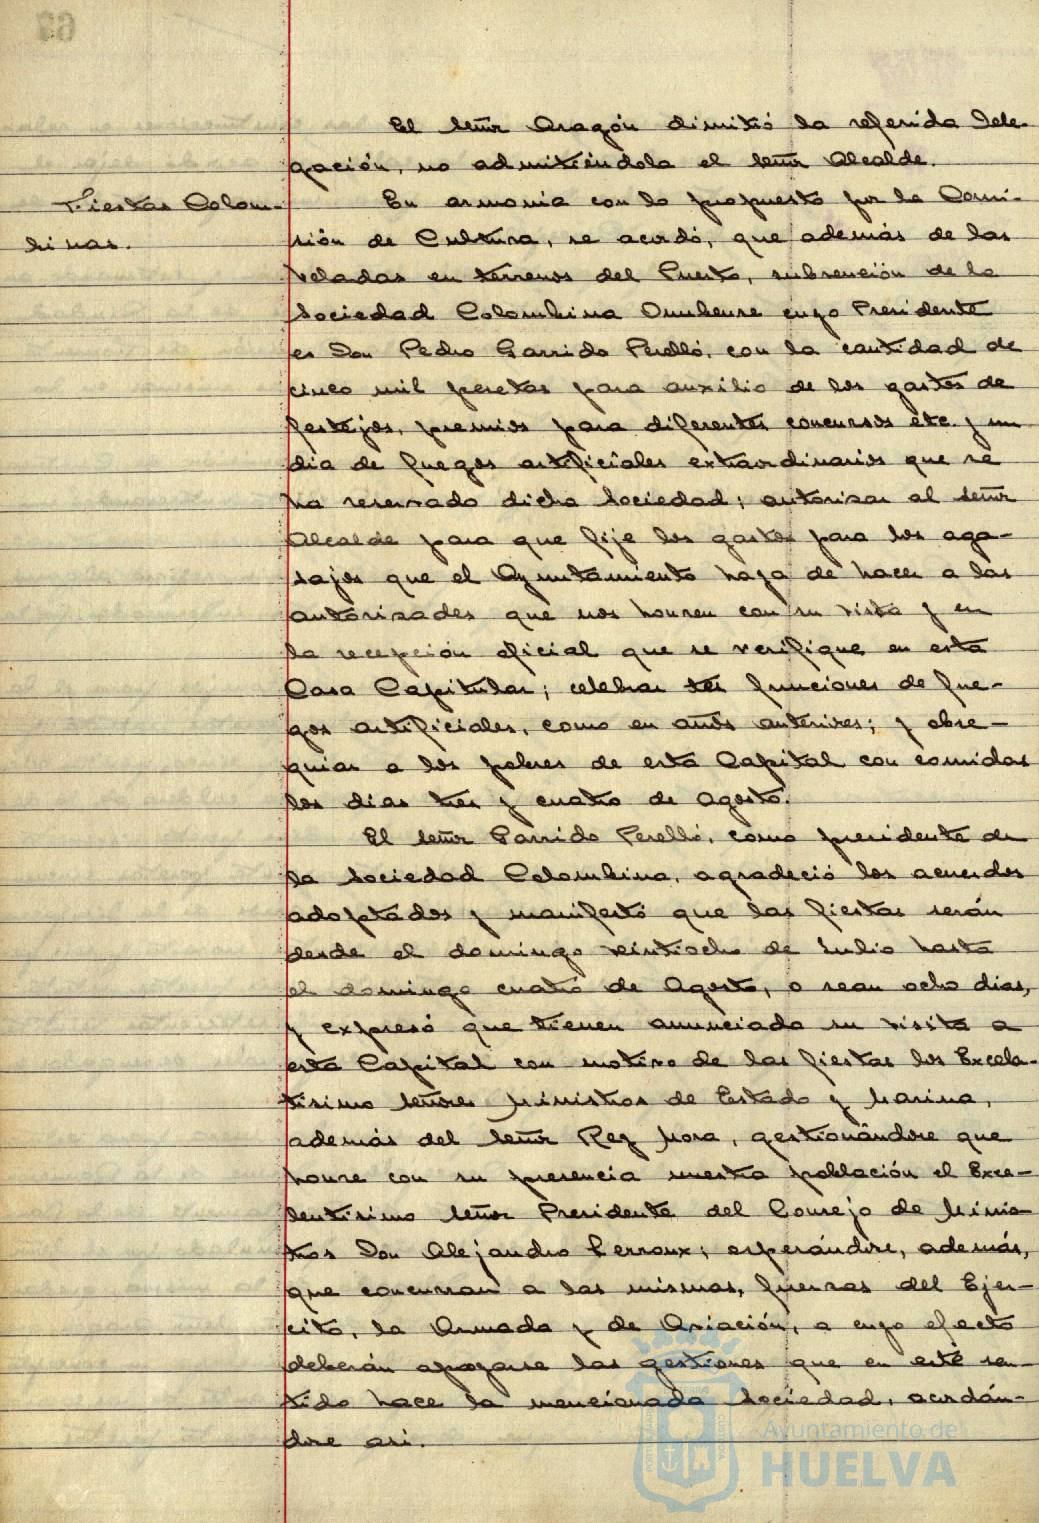 El señor Aragón dimitió la referida Dele-
gación, no admitiéndola el señor Alcalde.
Fiestas Colom-
binas.
En armonia con lo propuesto por la Comi-
sión de Cultura, se acordó, que además de las
veladas en terrenos del Puerto, subvención de la
Sociedad Colombina Onubense cuyo Presidente
es Don Pedro Garrido Perelló, con la cantidad de
cinco mil pesetas para auxilio de los gastos de
festejos, premios para diferentes concursos etc. y un
dia de fuegos artificiales extraordinarios que se
ha reservado dicha Sociedad; autorizar al señor
Alcalde para que fije los gastos para los aga-
sajos que el Ayuntamiento haya de hacer a las
autorizades que nos honren con su visita y en
la recepción oficial que se verifique en esta
Casa Capitular; celebrar tres funciones de fue-
gos artificiales, como en años anteriores; y obse-
quiar a los pobres de esta Capital con comidas
los dias tres y cuatro de Agosto.
El señor Garrido Perelló, como presidente de
la Sociedad Colombina, agradeció los acuerdos
adoptados y manifestó que las fiestas serán
desde el domingo veintiocho de Julio hasta
el domingo cuatro de Agosto, o sean ocho dias,
y expresó que tienen anunciada su visita a
esta Capital con motivo de las fiestas los Excela-
tisimo señores Ministros de Estado y Marina,
además del señor Rey Mora, gestionándose que
honre con su presencia nuestra población el Exce-
lentisimo señor Presidente del Consejo de Minis-
tros Don Alejandro Lerroux; esperándose, además,
que concurran a las mismas, fuerzas del Ejer-
cito, la Armada y de Aviación, a cuyo efecto
deberán apoyarse las gestiones que en este sen-
tido hace la mencionada Sociedad, acordán-
dose asi.
Ayuntamiento de
HUELVA